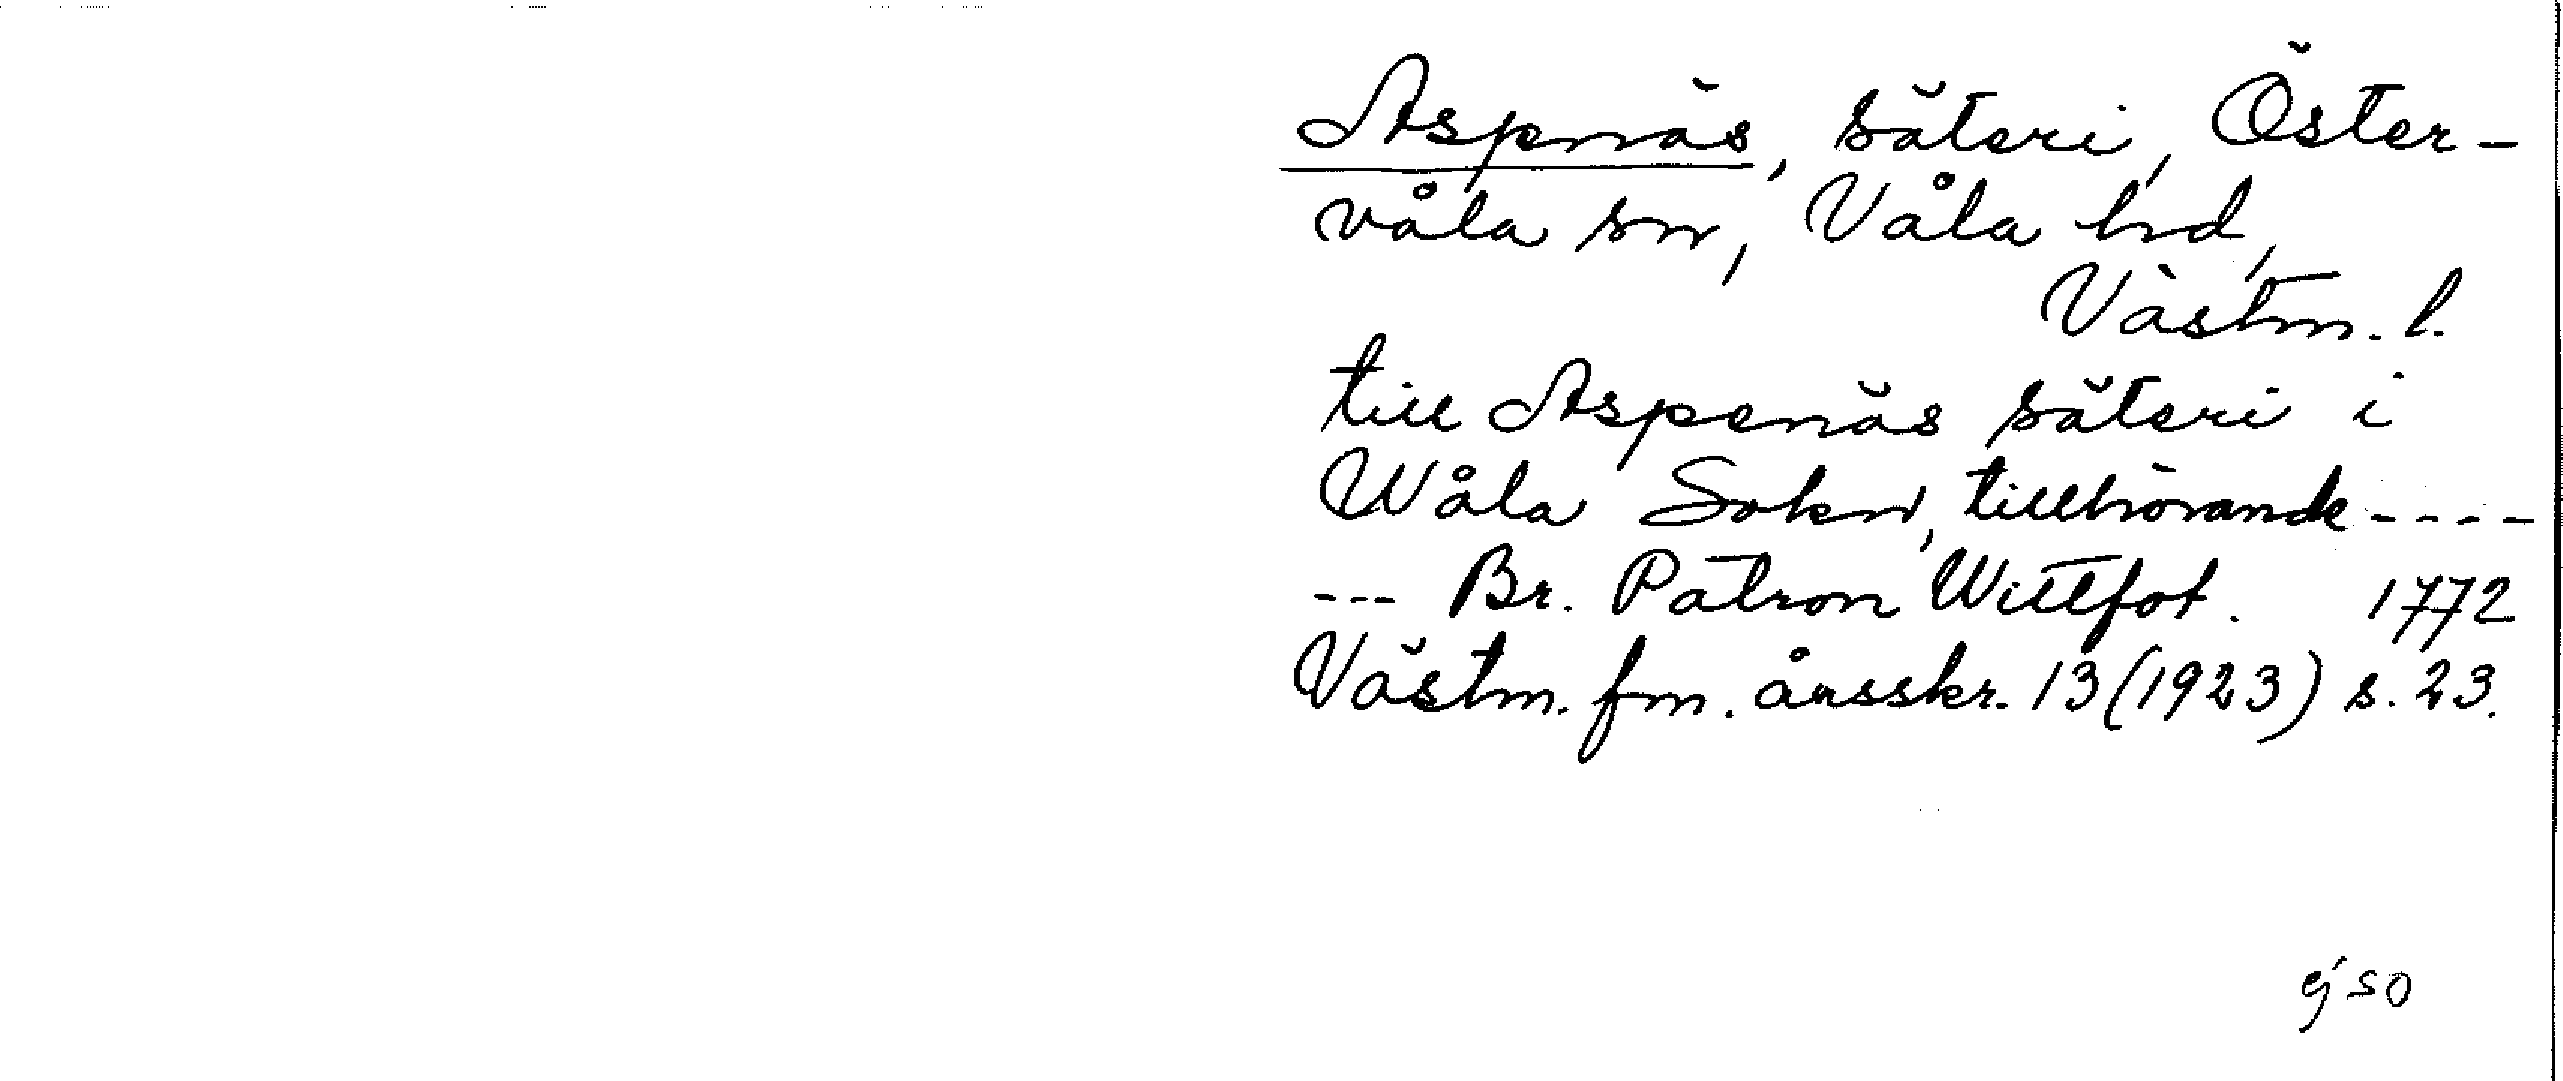 Aspnäs, säteri, Öster-
våla sn, Våla hd,
Västm. l.
till Aspenäs säteri i
Wåla Sokn, tillhörande ----
--- Br. Patron Wittfot. 1772
Västm. fm. årsskr. 13 (1923) s. 23.
ej SO